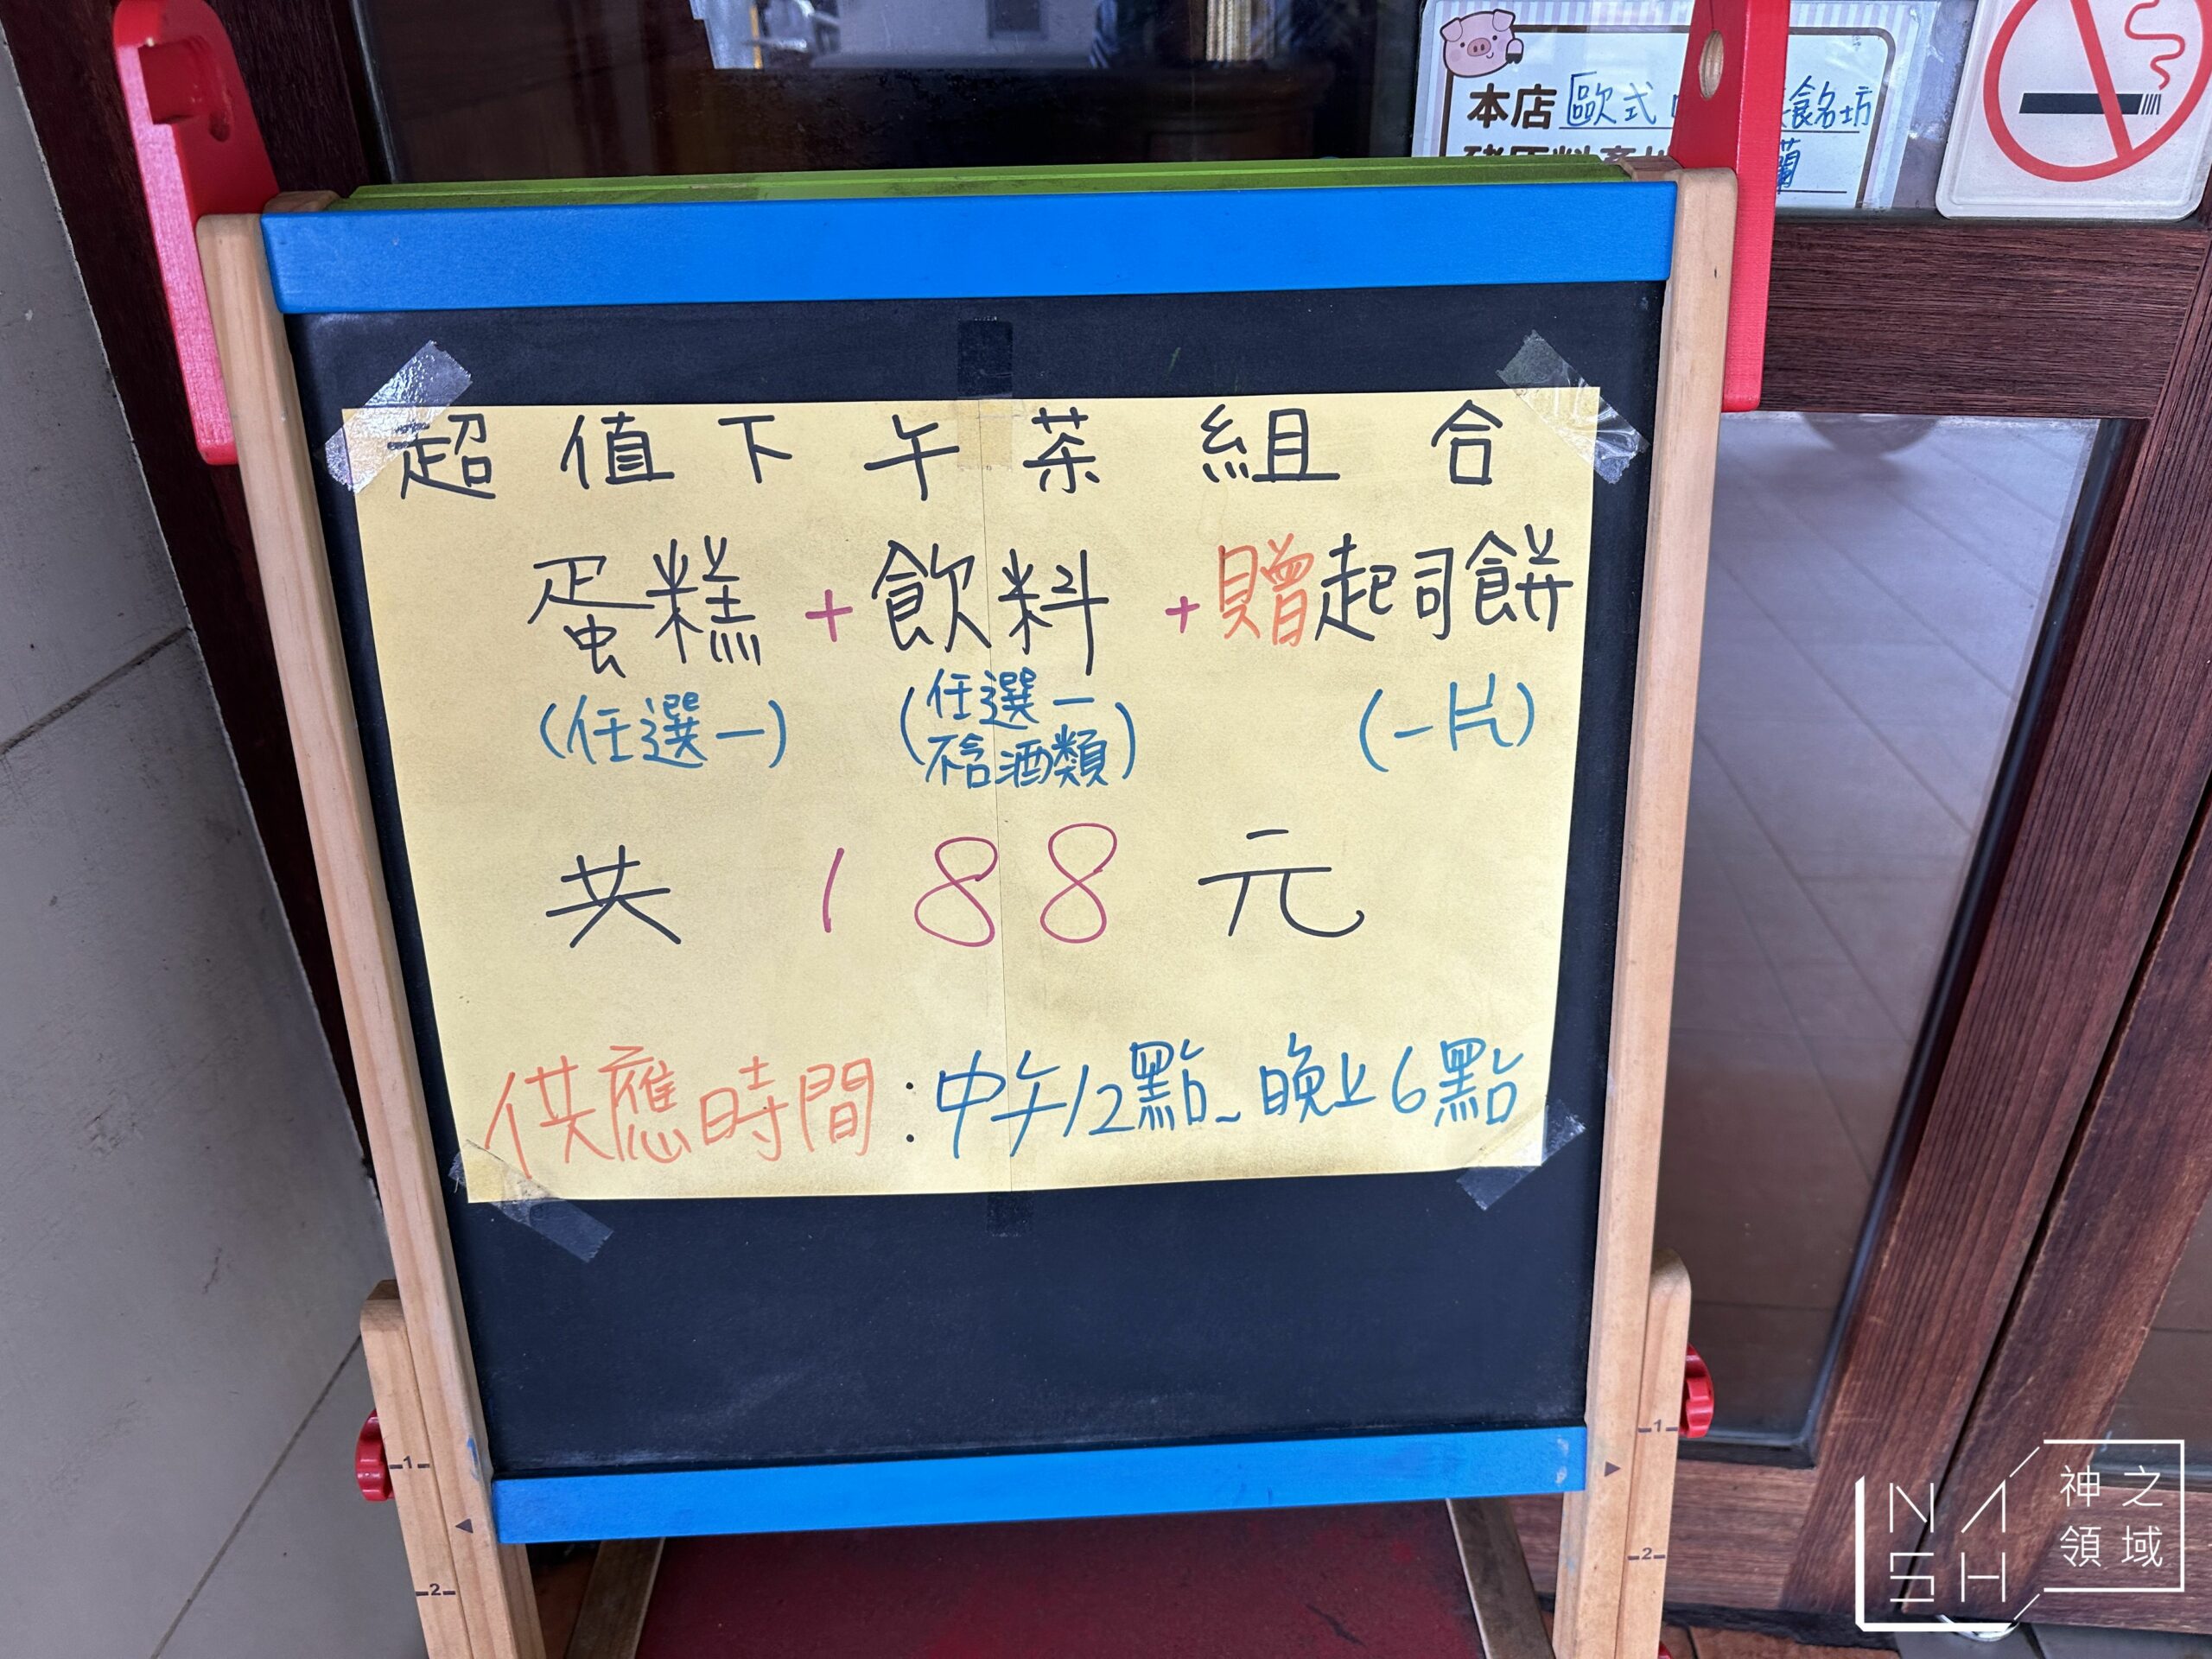 本店 歐式
超值下午茶組合
蛋糕 + 飲料 + 贈起司餅
(任選一) (任選一 不含酒類) (一片)
共 188 元
供應時間：中午12點~晚上6點
1
2
1
2
NASH
神之
領域